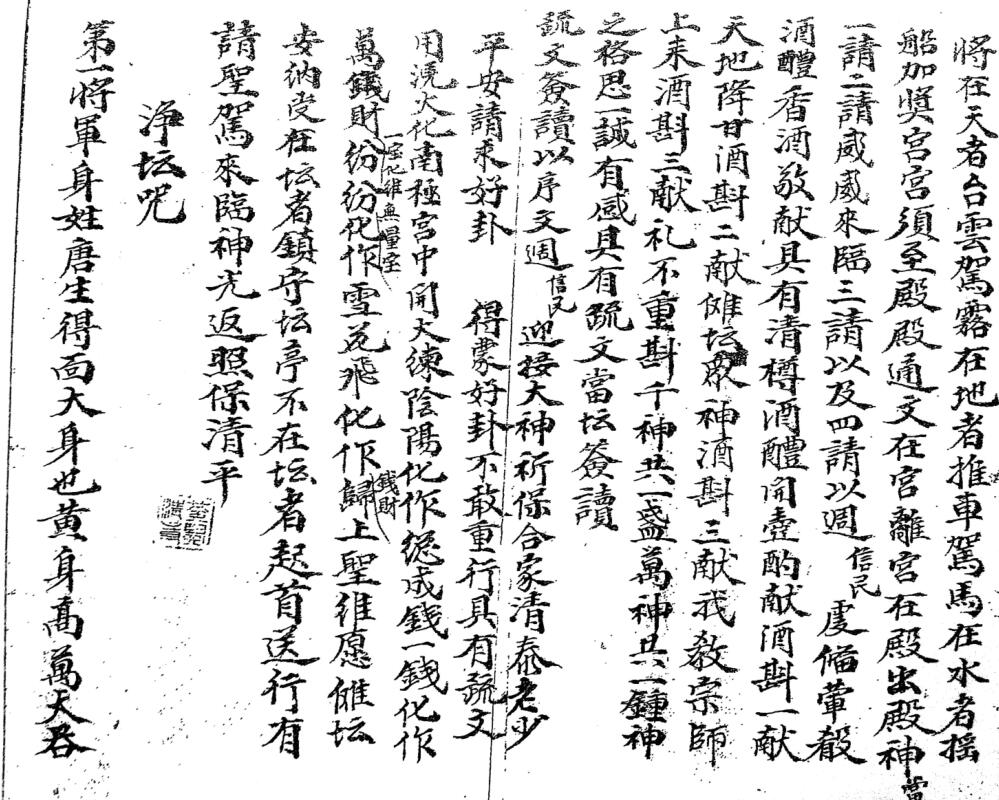 將在天者台雲駕霧在地者推車駕馬在水者搖
船加槳宮宮須至殿殿通文在宮離宮在殿出殿神當
一請二請威威來臨三請以及四請以週信民虔備葷殽
酒醴香酒敬献具有清樽酒醴開壺酌献酒斟一献
天地降甘酒斟二献傩坛眾神酒斟三献我教宗師
上来酒斟三献礼不重斟千神共一盏萬神共一鍾神
之格思一誠有感具有疏文當坛簽讀
疏文簽讀以序文週信民迎接大神祈保合家清泰老少
平安請來好卦 得蒙好卦不敢重行具有疏文
用淩火化南極宮中開大練陰陽化作總成錢一錢化作
萬錢財紛紛化作雪花飛化作歸上聖維愿傩坛
一室化維無量室
錢財
安納受在坛者鎮守坛亭不在坛者起首送行有
請聖駕來臨神光返照保清平
净坛咒
第一將軍身姓唐生得面大身也黃身高萬丈吞